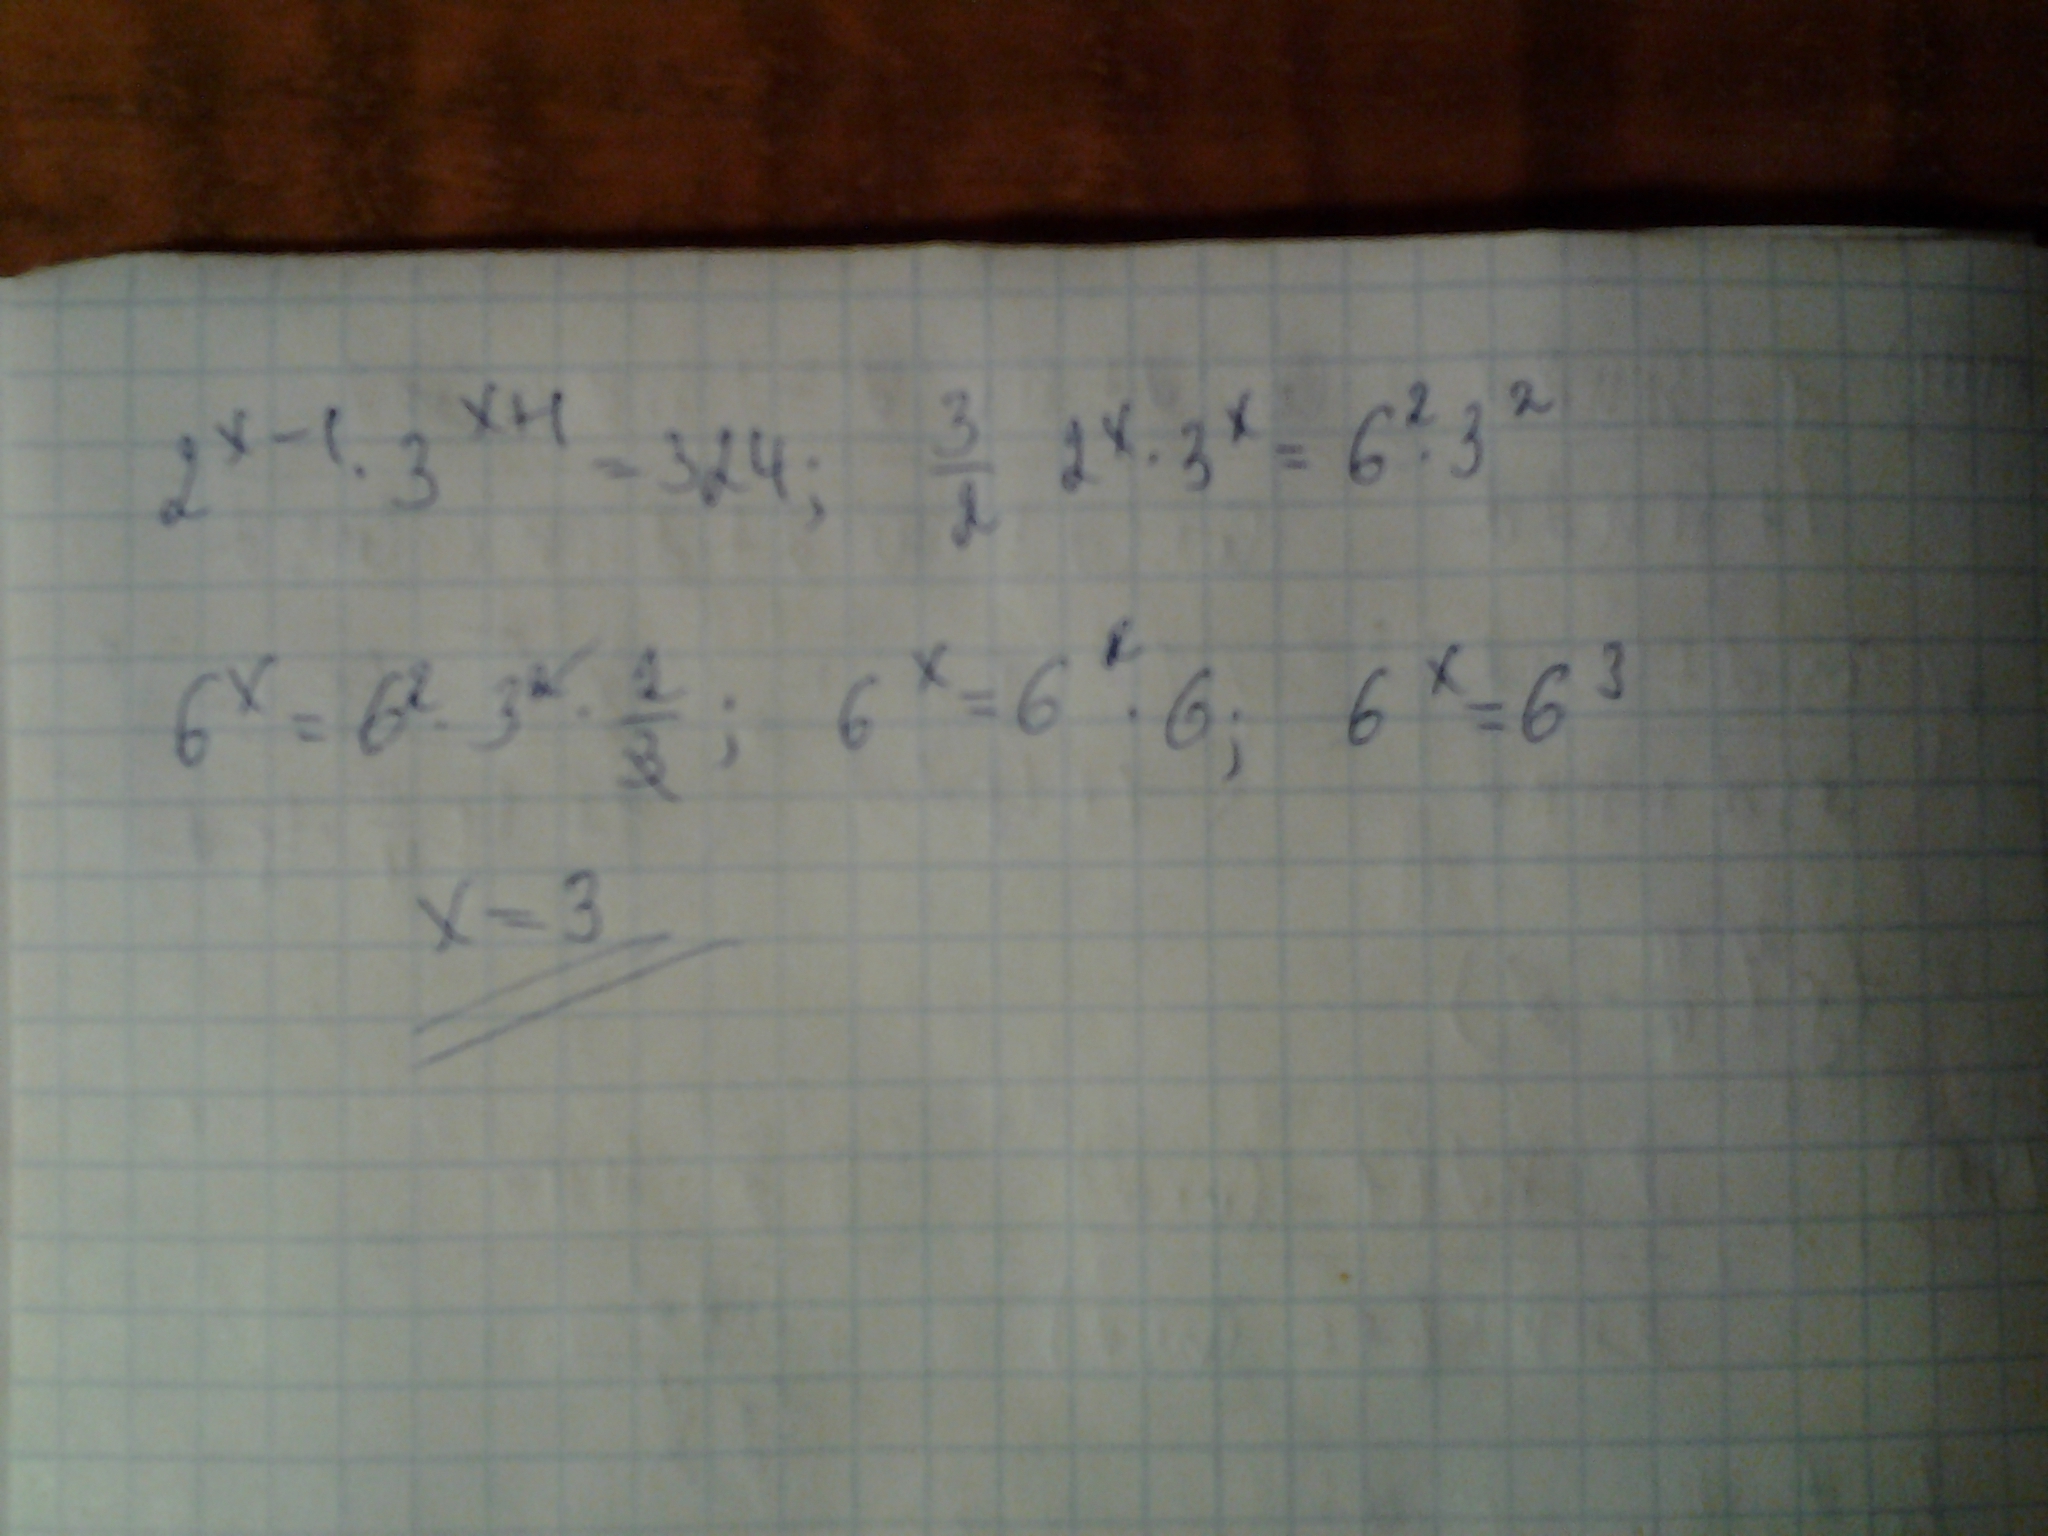 2^{x-1} · 3^{x+1} = 324; 3/2 2^x · 3^x = 6^2 · 3^2
6^x = 6^2 · 3^2 · 2/3; 6^x = 6^2 · 6; 6^x = 6^3
x = 3